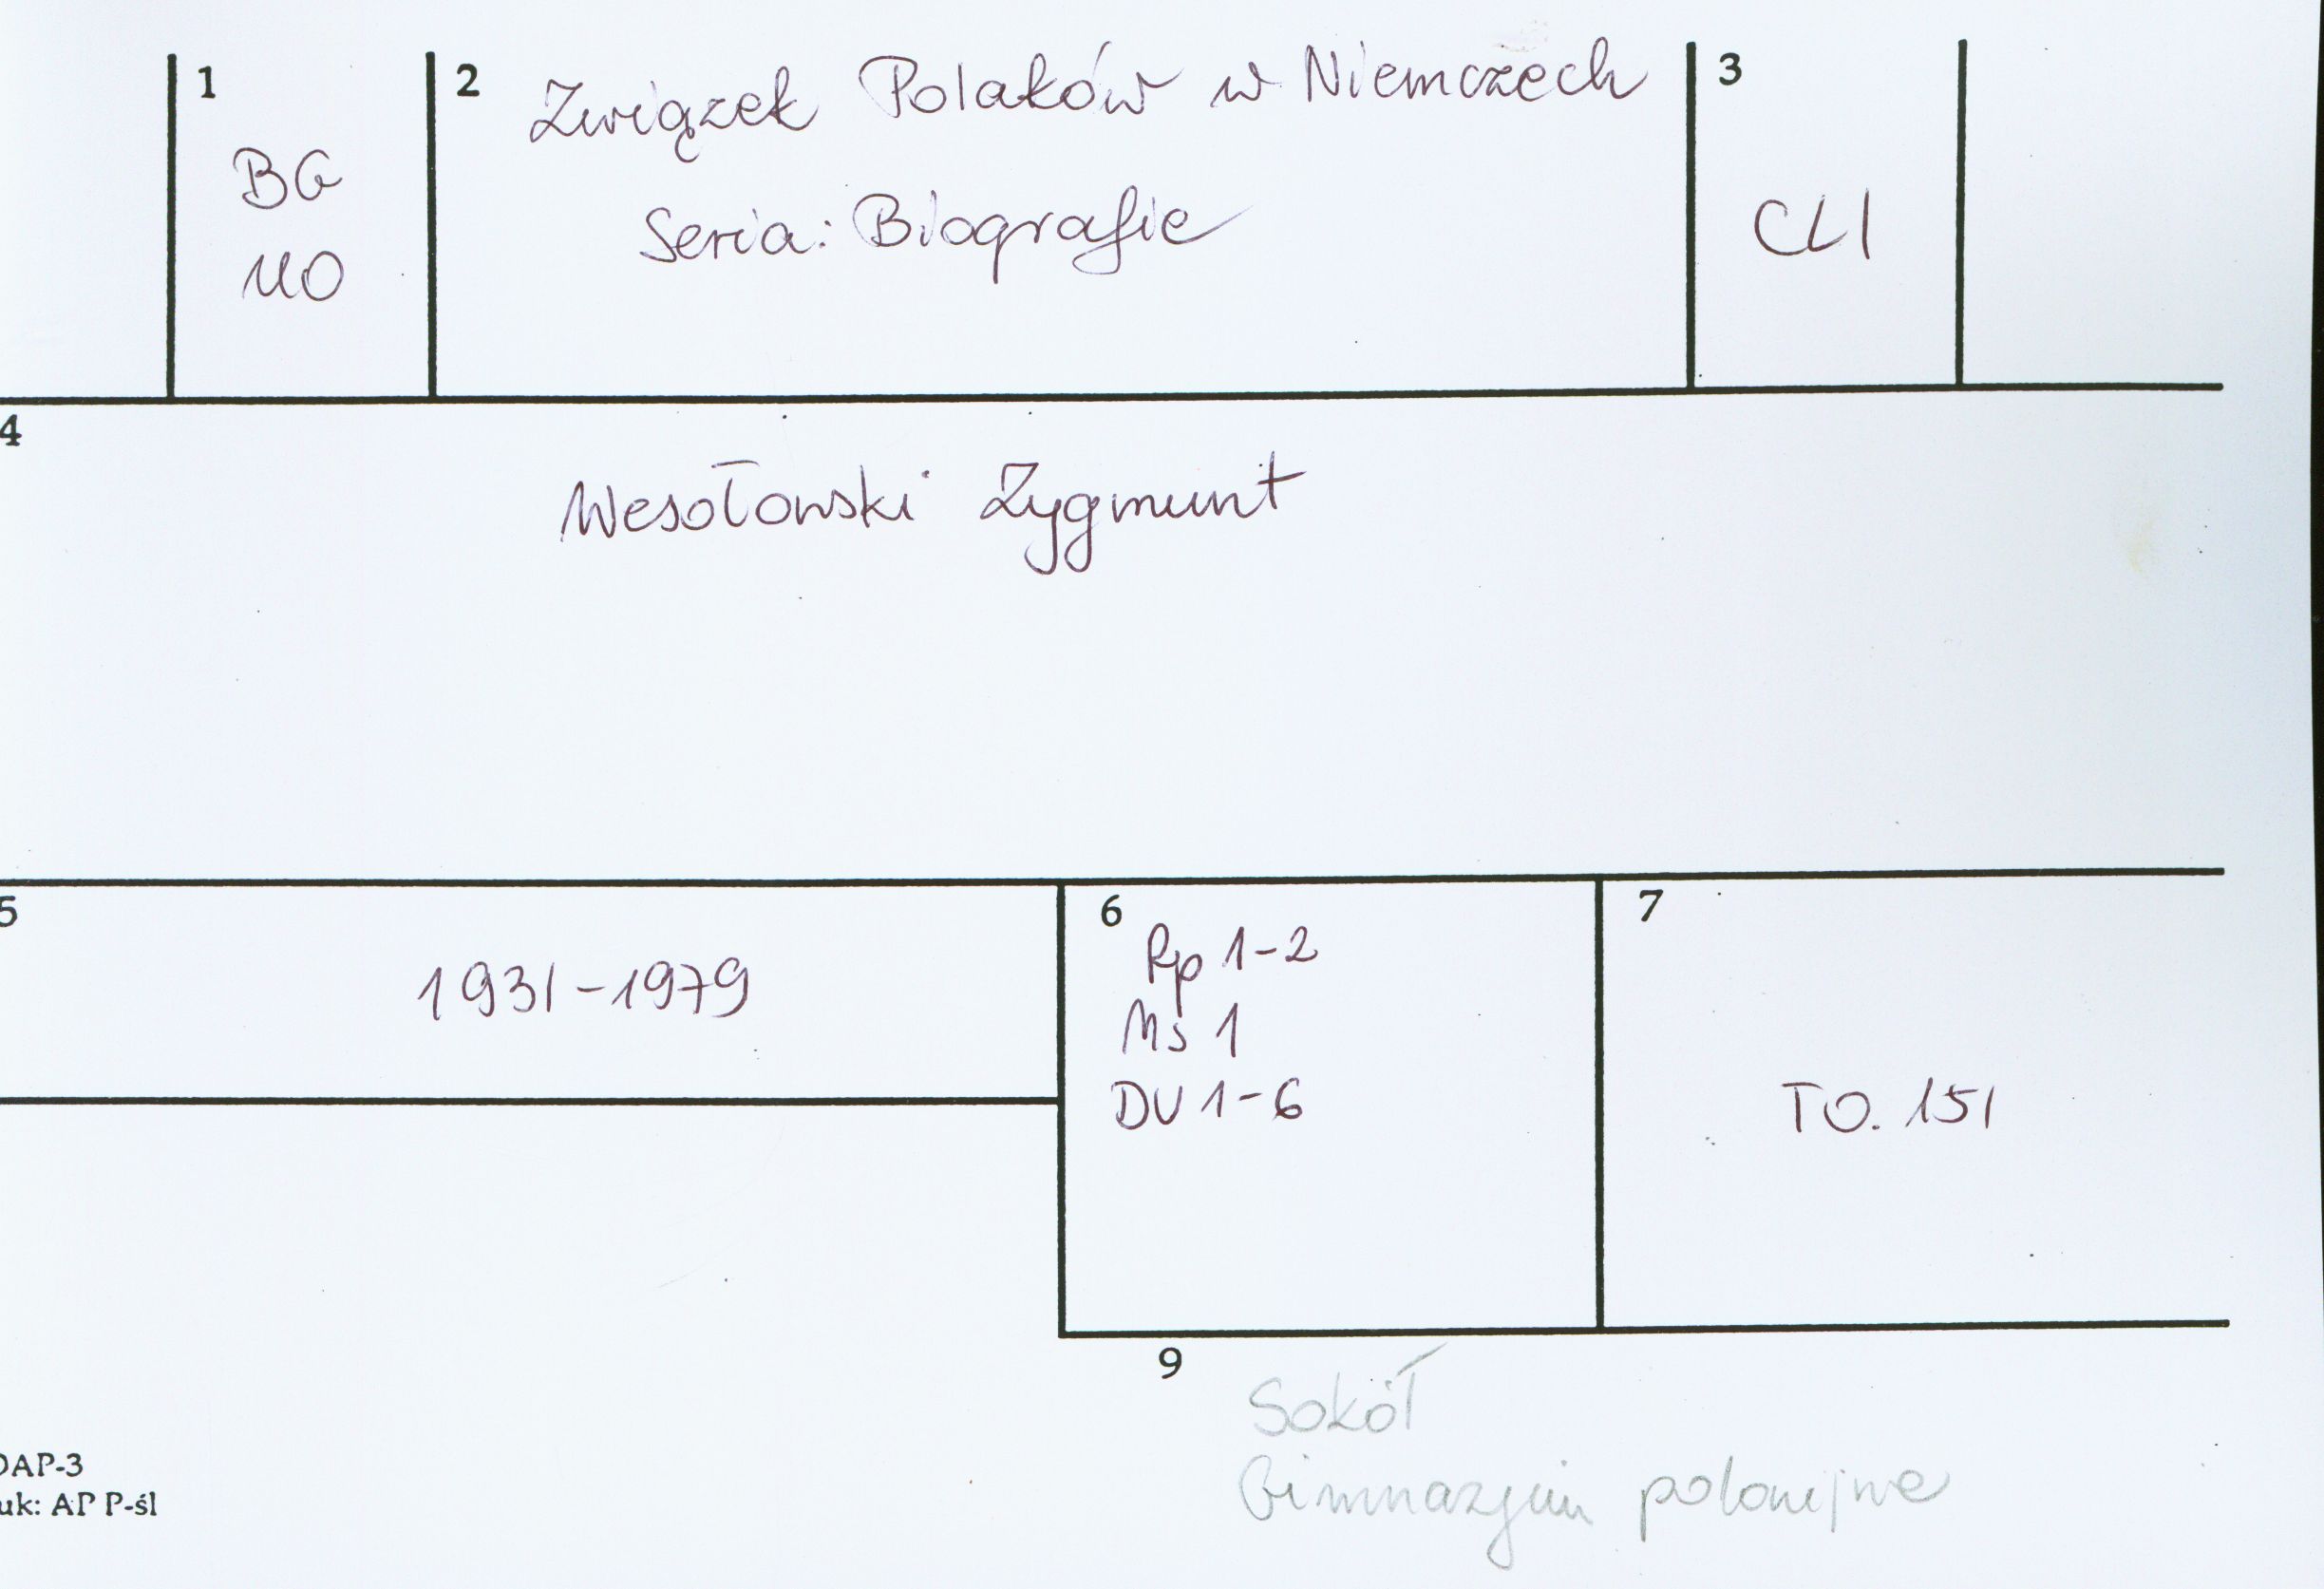 1
BG
110
2
Związek Polaków w Niemczech
Seria: Biografie
3
CLI
4
Wesołowski Zygmunt
5
1931-1979
6
Rp 1-2
Ms 1
DV 1-6
7
TO. 151
9
Sokół
Gimnazjum polonijne
DAP-3
uk: AP P-śl